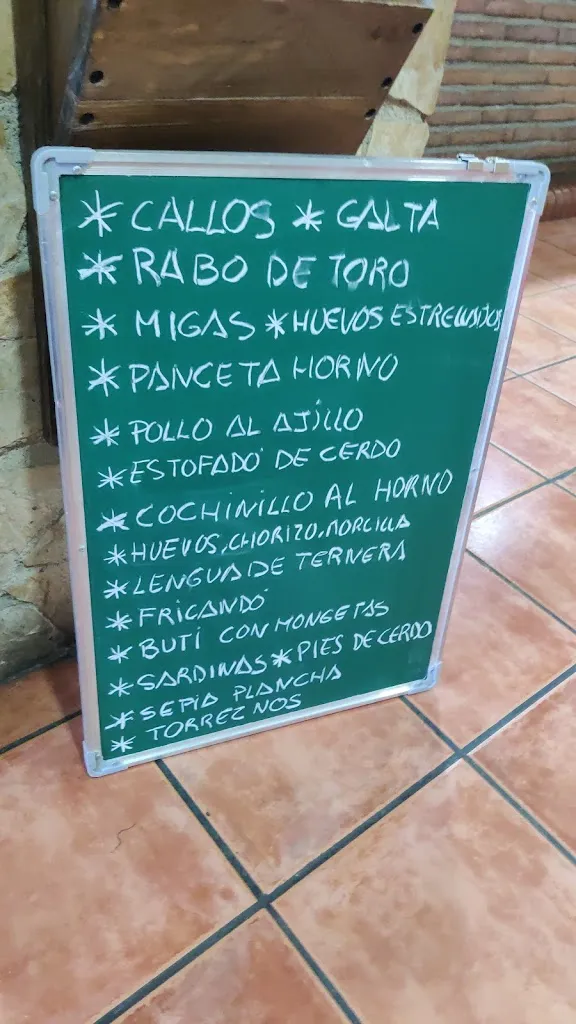 * CALLOS * GALTA
* RABO DE TORO
* MIGAS * HUEVOS ESTRELLADOS
* PANCETA HORNO
* POLLO AL AJILLO
* ESTOFADO DE CERDO
* COCHINILLO AL HORNO
* HUEVOS, CHORIZO, MORCILLA
* LENGUA DE TERNERA
* FRICANDÓ
* BUTI CON MONGETAS
* SARDINAS * PIES DE CERDO
* SEPIA PLANCHA
* TORREZNOS